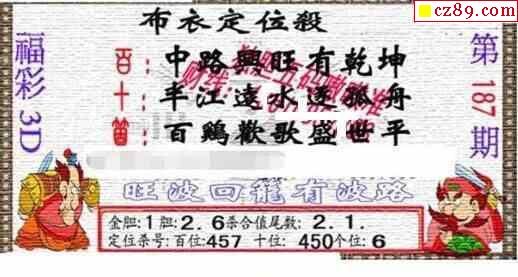 cz89.com
布衣定位殺
福彩3D
第187期
百：中路興旺有乾坤
十：半江遠水送孤舟
個：百鷄歡歌盛世平
旺波回龍有波路
金胆:1胆:2.6杀合值尾数:2.1.
定位杀号:百位:457 十位:450个位:6